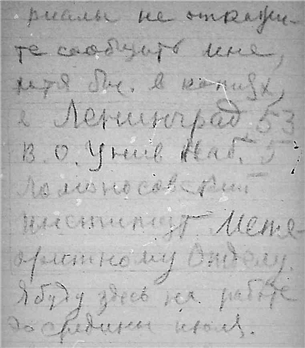 риалы не откажи-
те сообщить мне,
хотя бы в копиях,
в Ленинград, 53
В.О. Унив. Наб. 5
Ломоносовский
институт Мете-
оритному Отделу.
Я буду здесь на работе
до средины июля.